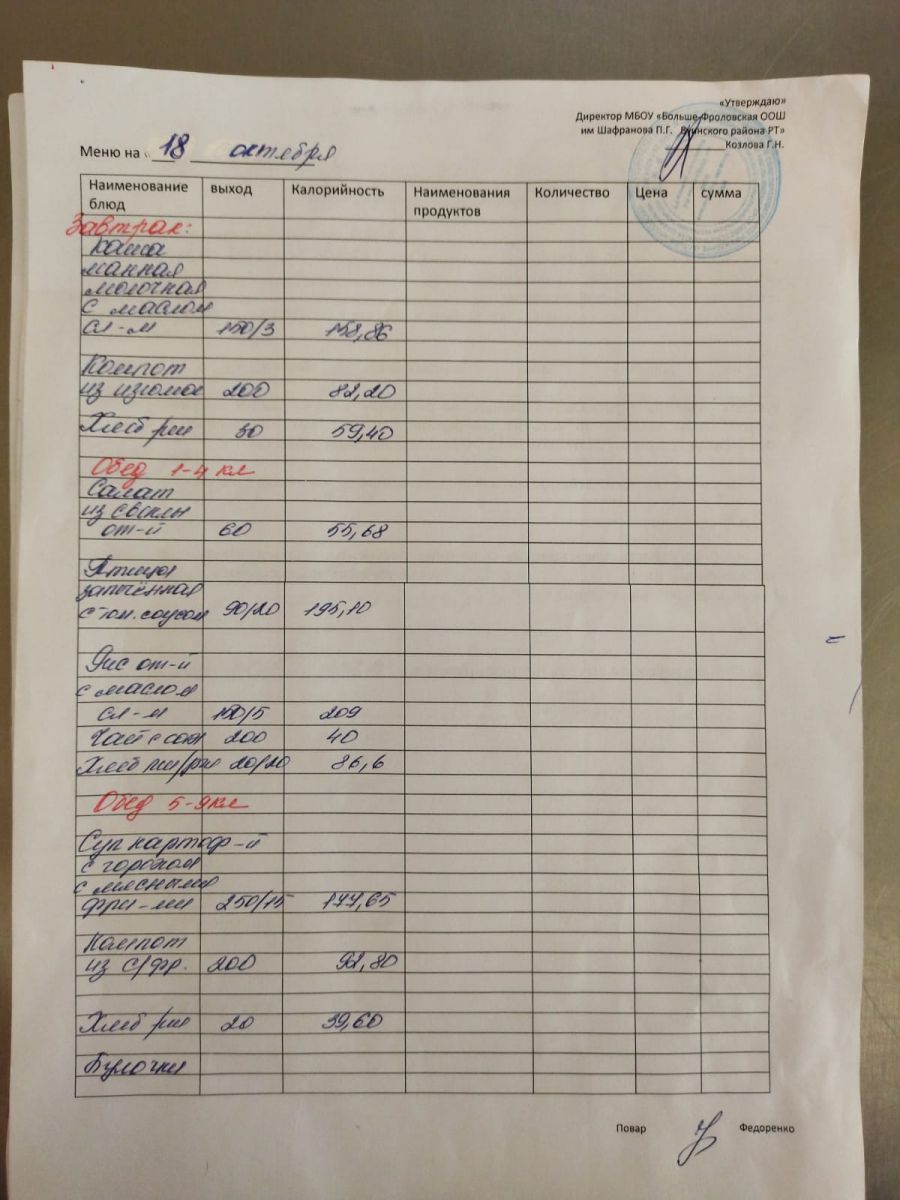 «Утверждаю»
Директор МБОУ «Больше-Фроловская ООШ
им Шафранова П.Г. Буинского района РТ»
Козлова Г.Н.
Меню на « 18 октября
Наименование блюд выход Калорийность Наименования продуктов Количество Цена сумма
Завтрак:
Каша
манная
молочная
с маслом
сл-м 150/3 158,86
Компот
из изюма 200 82,20
Хлеб рж 30 59,40
Обед 1-4 кл
Салат
из свеклы
от-й 60 55,68
Птица
запечённая
с том. соусом 90/20 195,10
Рис от-й
с маслом
сл-м 150/5 209
Чай с сах 200 40
Хлеб пш/рж 20/20 86,6
Обед 5-9 кл
Суп картоф-й
с горохом
с мясными
фри-ми 250/15 177,65
Компот
из с/фр. 200 92,80
Хлеб рж 20 39,60
Булочка
Повар Федоренко